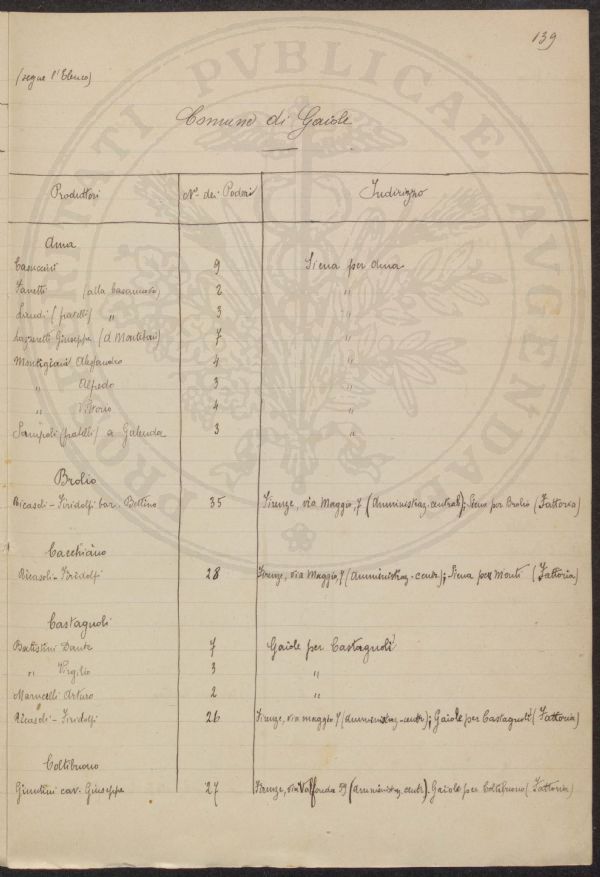 139
(segue l'Elenco)
Comune di Gaiole
Produttori N° dei Poderi Indirizzo
Ama
Casuccini 9 Siena per Ama
Zanetti (alla Casanuova) 2 "
Landi (fratelli) " 3 "
Lazzeretti Giuseppe (d Montebuoi) 7 "
Montigiani Alessandro 4 "
" Alfredo 3 "
" Vittorio 4 "
Sampoli (fratelli) a Galenda 3 "
Brolio
Ricasoli-Firidolfi bar. Bettino 35 Firenze, via Maggio, 7 (Amministraz. centrale); Siena per Brolio (Fattoria)
Cacchiano
Ricasoli-Firidolfi 28 Firenze, via Maggio, 7 (Amministraz-centr.); Siena per Monti (Fattoria)
Castagnoli
Battistini Dante 7 Gaiole per Castagnoli
" Virgilio 3 "
Marucelli Arturo 2 "
Ricasoli-Firidolfi 26 Firenze, via maggio 7 (Amministraz-centr); Gaiole per Castagnoli (Fattoria)
Coltibuono
Giuntini cav. Giuseppe 27 Firenze, via Valfonda 59 (Amministraz. centr.). Gaiole per Coltibuono (Fattoria)
PROSPERITATI PVBLICAE AVGENDAE